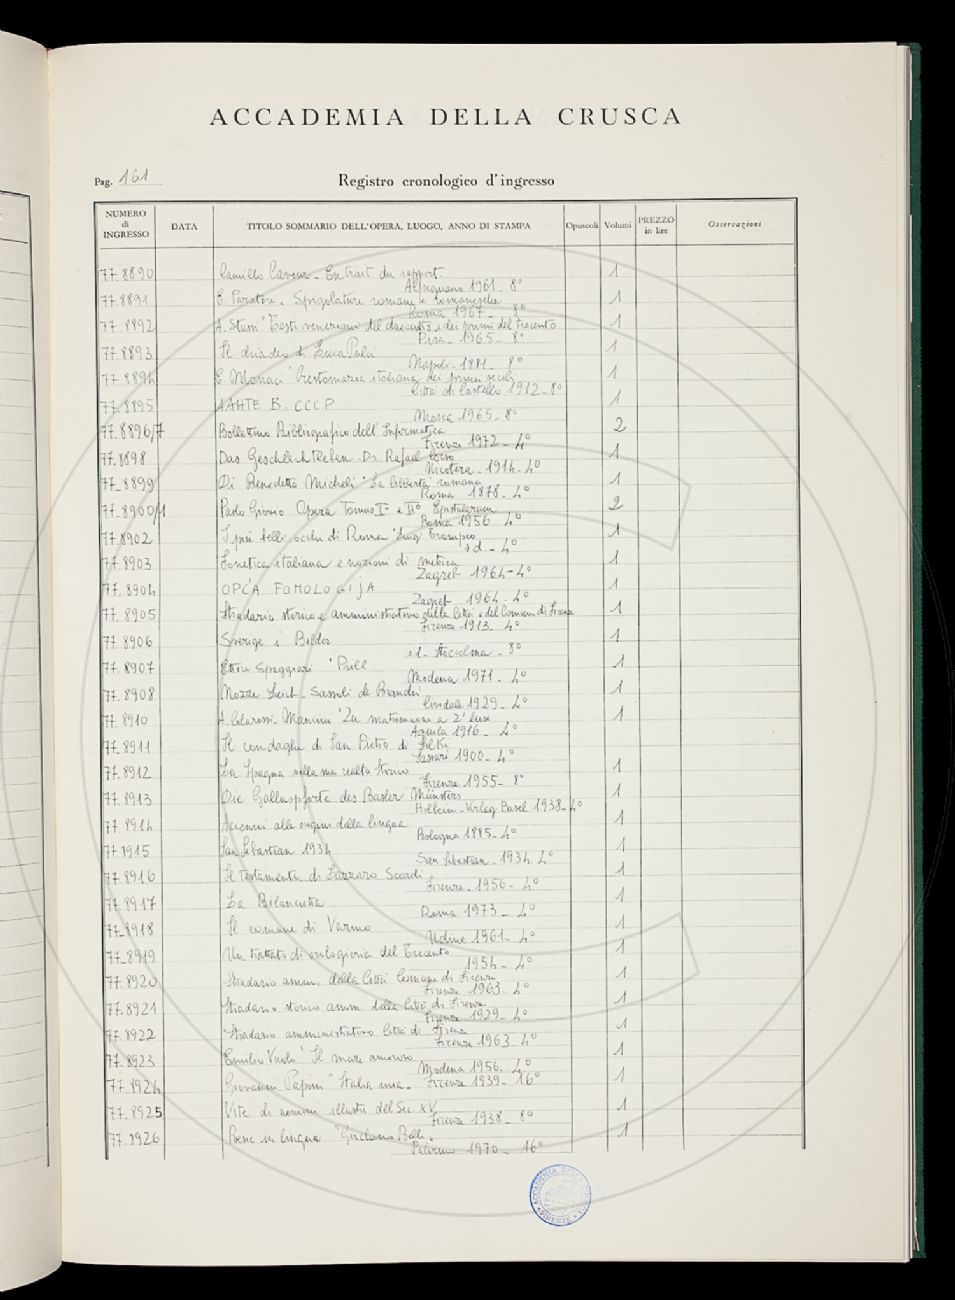 ACCADEMIA DELLA CRUSCA
Pag. 161
Registro cronologico d'ingresso
NUMERO di INGRESSO DATA TITOLO SOMMARIO DELL'OPERA, LUOGO, ANNO DI STAMPA Opuscoli Volumi PREZZO in lire Osservazioni
77.8890 Camillo Cavour - Extrait du rapport 1
Alpignano 1961 - 8°
77.8891 E. Paratore. Spigolature romane e romanesche 1
Roma 1967 - 8°
77.8892 A. Stussi "Testi veneziani del duecento e dei primi del trecento 1
Pisa - 1965 - 8°
77.8893 Il driadeo di Luca Pulci 1
Napoli - 1881 - 8°
77.8894 E. Monaci "Crestomazia italiana dei primi secoli 1
Città di Castello 1912 - 8°
77.8895 ДАНТЕ В. СССР 1
Mosca 1965 - 8°
77.8896/7 Bollettino Bibliografico dell'Informatica 2
Firenze 1972 - 4°
77.8898 Das Geschlechtleben Dr. Rafael Corso 1
Nicotera - 1914 - 4°
77.8899 Di Benedetto Micheli "La libbertà romana 1
Roma 1878 - 4°
77.8900/1 Paolo Giovio Opera Tomus I° e II° Epistularum 2
Roma 1956 4°
77.8902 I più belli occhi di Roma "Luigi 1
s.d. - 4°
77.8903 Fonetica italiana e nozioni di metrica 1
Zagreb 1964 - 4°
77.8904 OPĆA FONOLOGIJA 1
Zagreb 1964 - 4°
77.8905 Stradario storico e amministrativo della Città e del Comune di Firenze 1
Firenze 1913 - 4°
77.8906 Sverige i Bilder 1
s.d. Stoccolma - 8°
77.8907 Ettore Speggiari "Prell 1
Modena 1971 - 4°
77.8908 Nozze Leicht - Sassoli de Bianchi 1
Cividale 1929 - 4°
77.8910 A. Colarossi-Mancini 1
Aquila 1916 - 4°
77.8911 Il condaghe di San Pietro di Silki
Sassari 1900 - 4°
77.8912 La Spagna nella sua realtà storica 1
Firenze 1955 - 8°
77.8913 Die Galluspforte des Basler Münsters 1
Holbein-Verlag Basel 1938 - 4°
77.8914 Accenni alle origini della lingua 1
Bologna 1885 - 4°
77.8915 San Sebastian 1934 1
San Sebastian - 1934 4°
77.8916 Il testamento di Lazzaro 1
Firenze - 1956 - 4°
77.8917 La Bilancetta 1
Roma 1973 - 4°
77.8918 Il comune di Varmo 1
Udine 1961 - 4°
77.8919 Un trattato di orologieria del Trecento 1
1954 - 4°
77.8920 Stradario amm. della Città Comune di Firenze 1
Firenze 1963 - 4°
77.8921 Stradario storico amm. della Città di Firenze 1
Firenze 1929 - 4°
77.8922 Stradario amministrativo Città di Firenze 1
Firenze 1963 - 4°
77.8923 Emilio Vuolo "Il mare amoroso 1
Modena 1956 - 4°
77.8924 Giovanni Papini "Italia mia - Firenze 1939 - 16° 1
77.8925 Vite di uomini illustri del Sec. XV 1
Firenze 1938 - 8°
77.8926 Poesie in lingua "Girolamo 1
Palermo 1970 - 16°
ACCADEMIA DELLA CRUSCA
FIRENZE